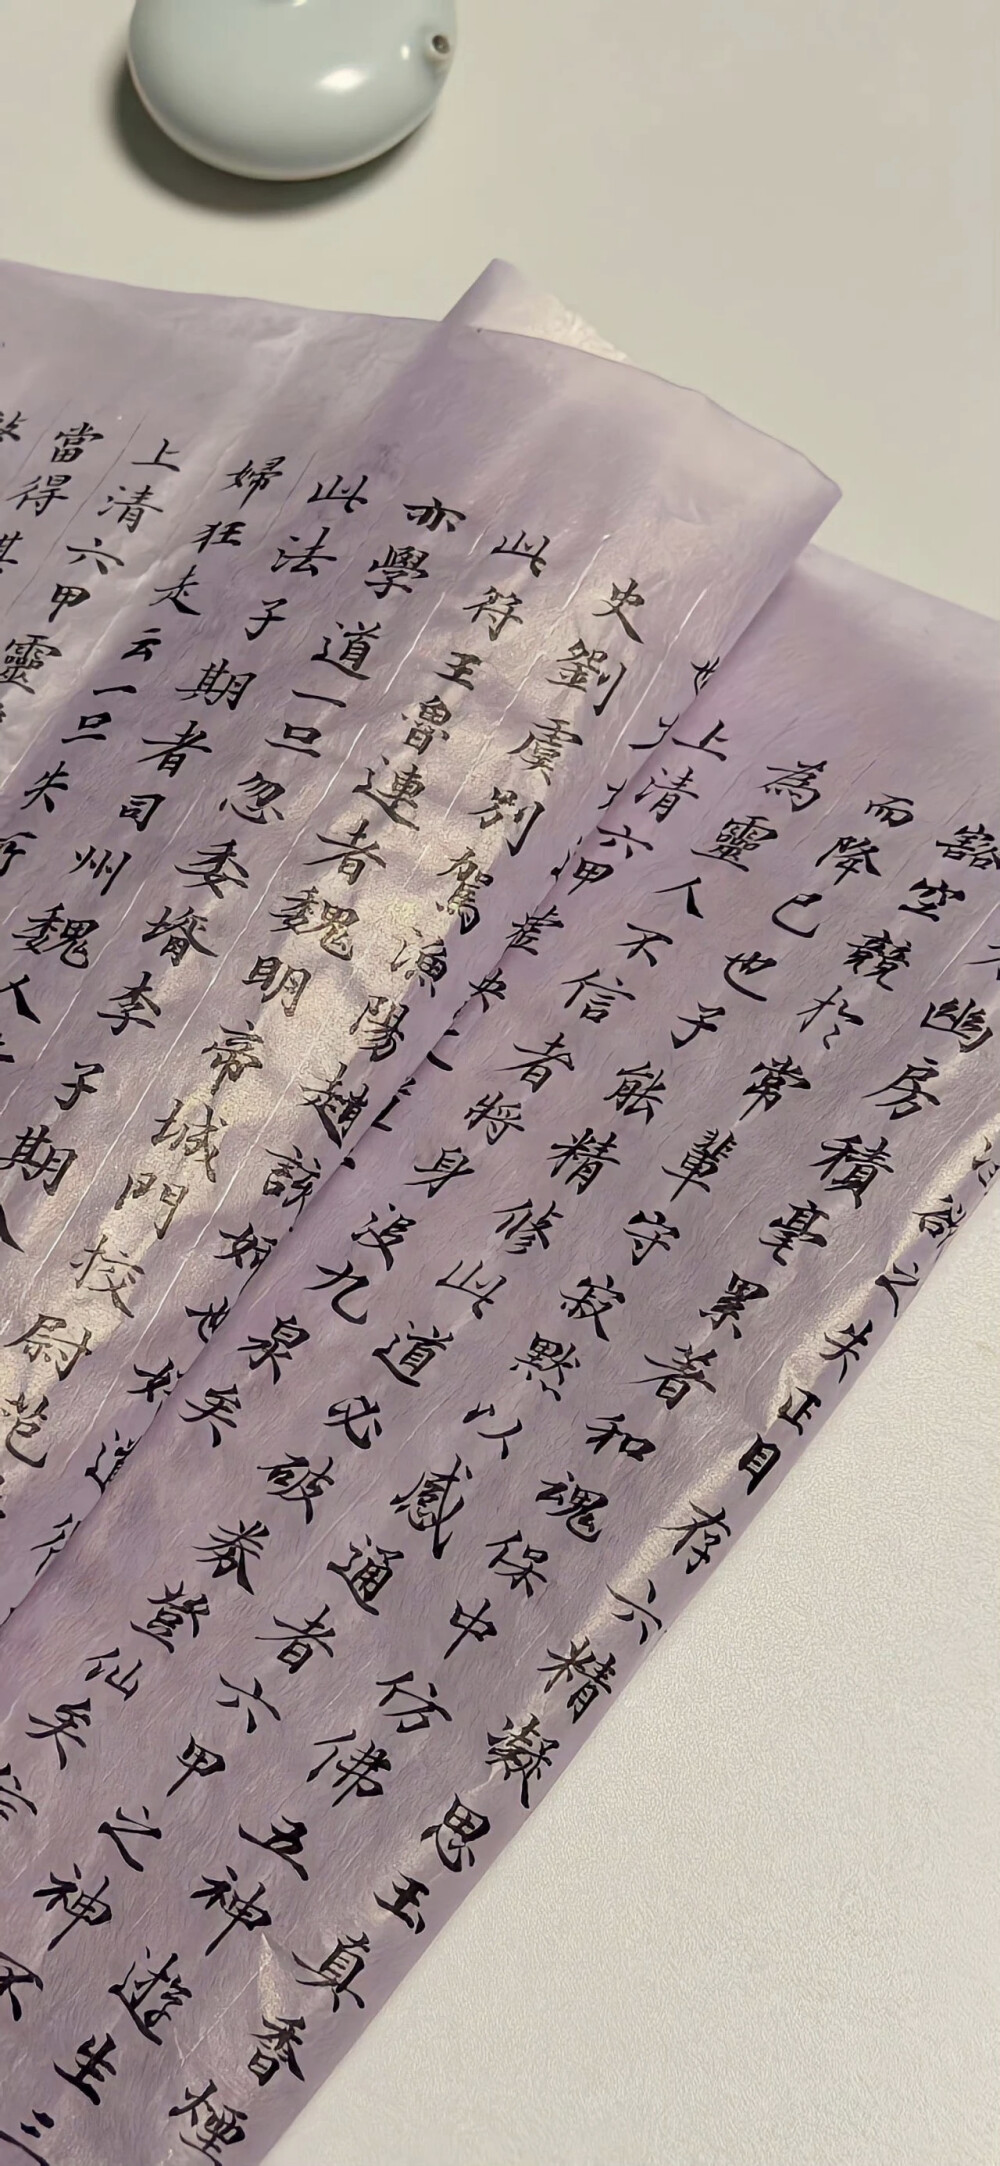 欲之失正目存六精凝思玉真香煙
幽房積毫累著和魂保中仿佛五神遊生三
豁空競於常輩守寂默以感通者六甲之神不
而降已也子能精修此道必破券登仙矣
為靈人不信者將身沒九泉矣
上清六甲虛映之
史劉虞別駕漁陽趙該
此符王魯連者魏明帝城門校尉范
亦學道一旦忽委壻李子期入
此法子期者司州魏人
婦狂走云一旦失所
上清六甲靈
當得其